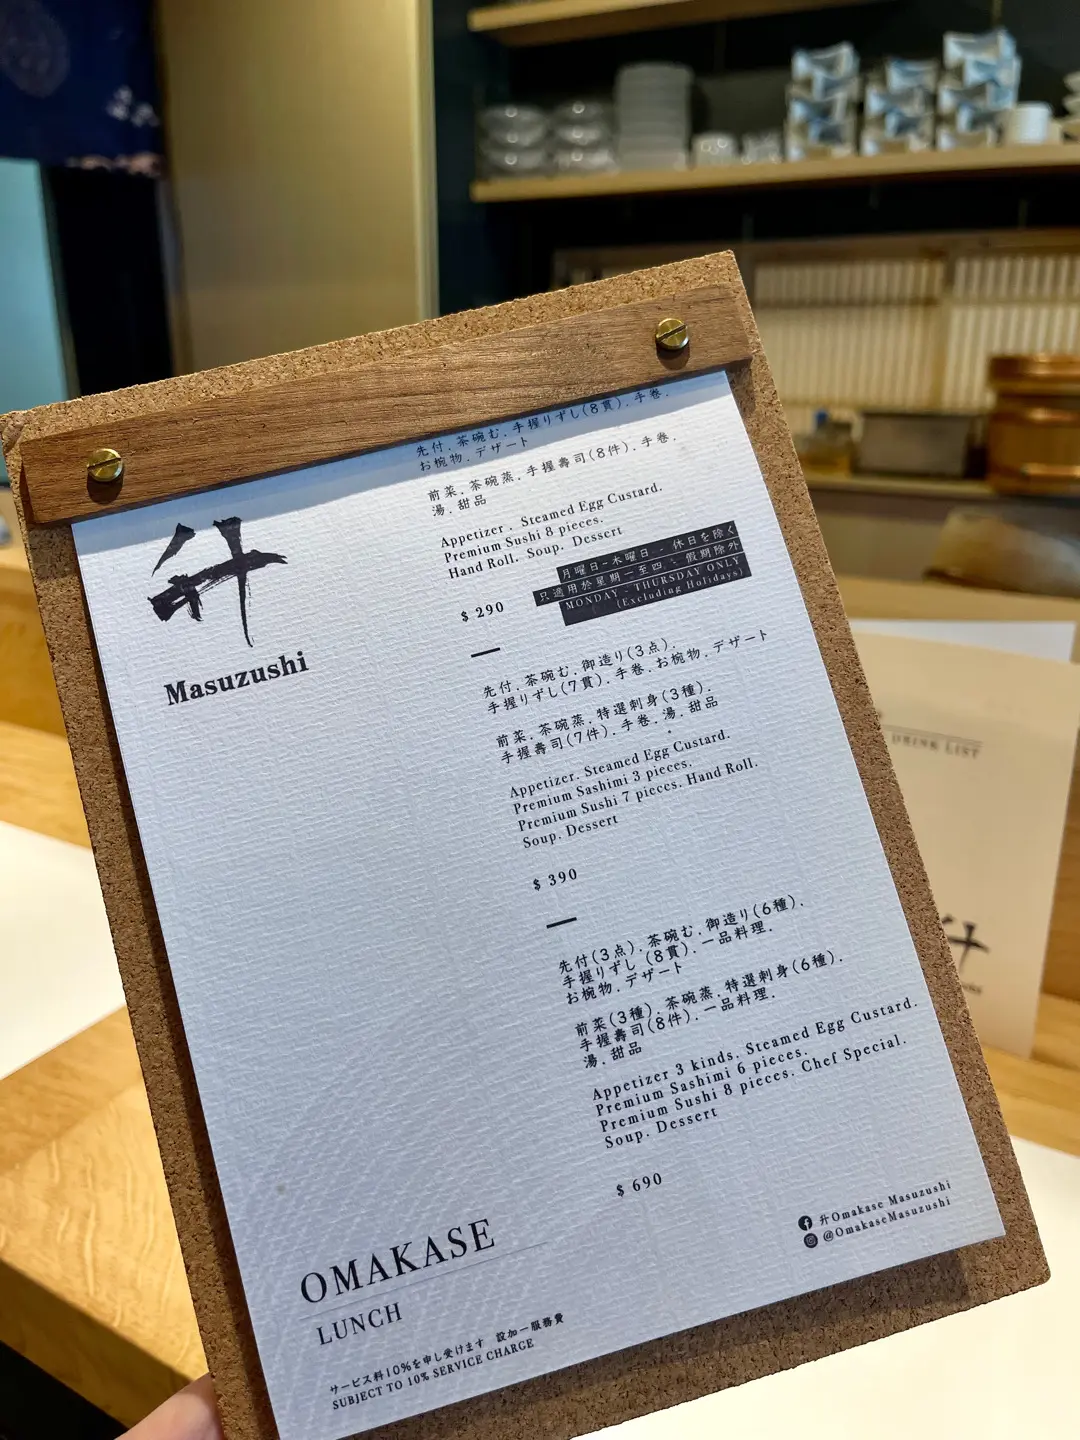 升
Masuzushi
先付.茶碗む.手握りずし(8貫).手巻.
お椀物.デザート
前菜.茶碗蒸.手握壽司(8件).手巻.
湯.甜品
Appetizer . Steamed Egg Custard.
Premium Sushi 8 pieces.
Hand Roll. Soup. Dessert
$ 290
月曜日-木曜日 - 休日を除く
只適用於星期一至四 - 假期除外
MONDAY - THURSDAY ONLY
(Excluding Holidays)
先付.茶碗む.御造り(3点).
手握りずし(7貫).手巻.お椀物.デザート
前菜.茶碗蒸.特選刺身(3種).
手握壽司(7件).手巻.湯.甜品
Appetizer. Steamed Egg Custard.
Premium Sashimi 3 pieces.
Premium Sushi 7 pieces. Hand Roll.
Soup. Dessert
$ 390
先付(3点).茶碗む.御造り(6種).
手握りずし(8貫).一品料理.
お椀物.デザート
前菜(3種).茶碗蒸.特選刺身(6種).
手握壽司(8件).一品料理.
湯.甜品
Appetizer 3 kinds. Steamed Egg Custard.
Premium Sashimi 6 pieces.
Premium Sushi 8 pieces. Chef Special.
Soup. Dessert
$ 690
OMAKASE
LUNCH
サービス料10%を申し受けます 設加一服務費
SUBJECT TO 10% SERVICE CHARGE
升Omakase Masuzushi
@OmakaseMasuzushi
DRINK LIST
升